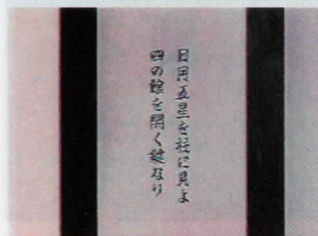 日月五星を柱に見よ
四の館を開く鍵なり